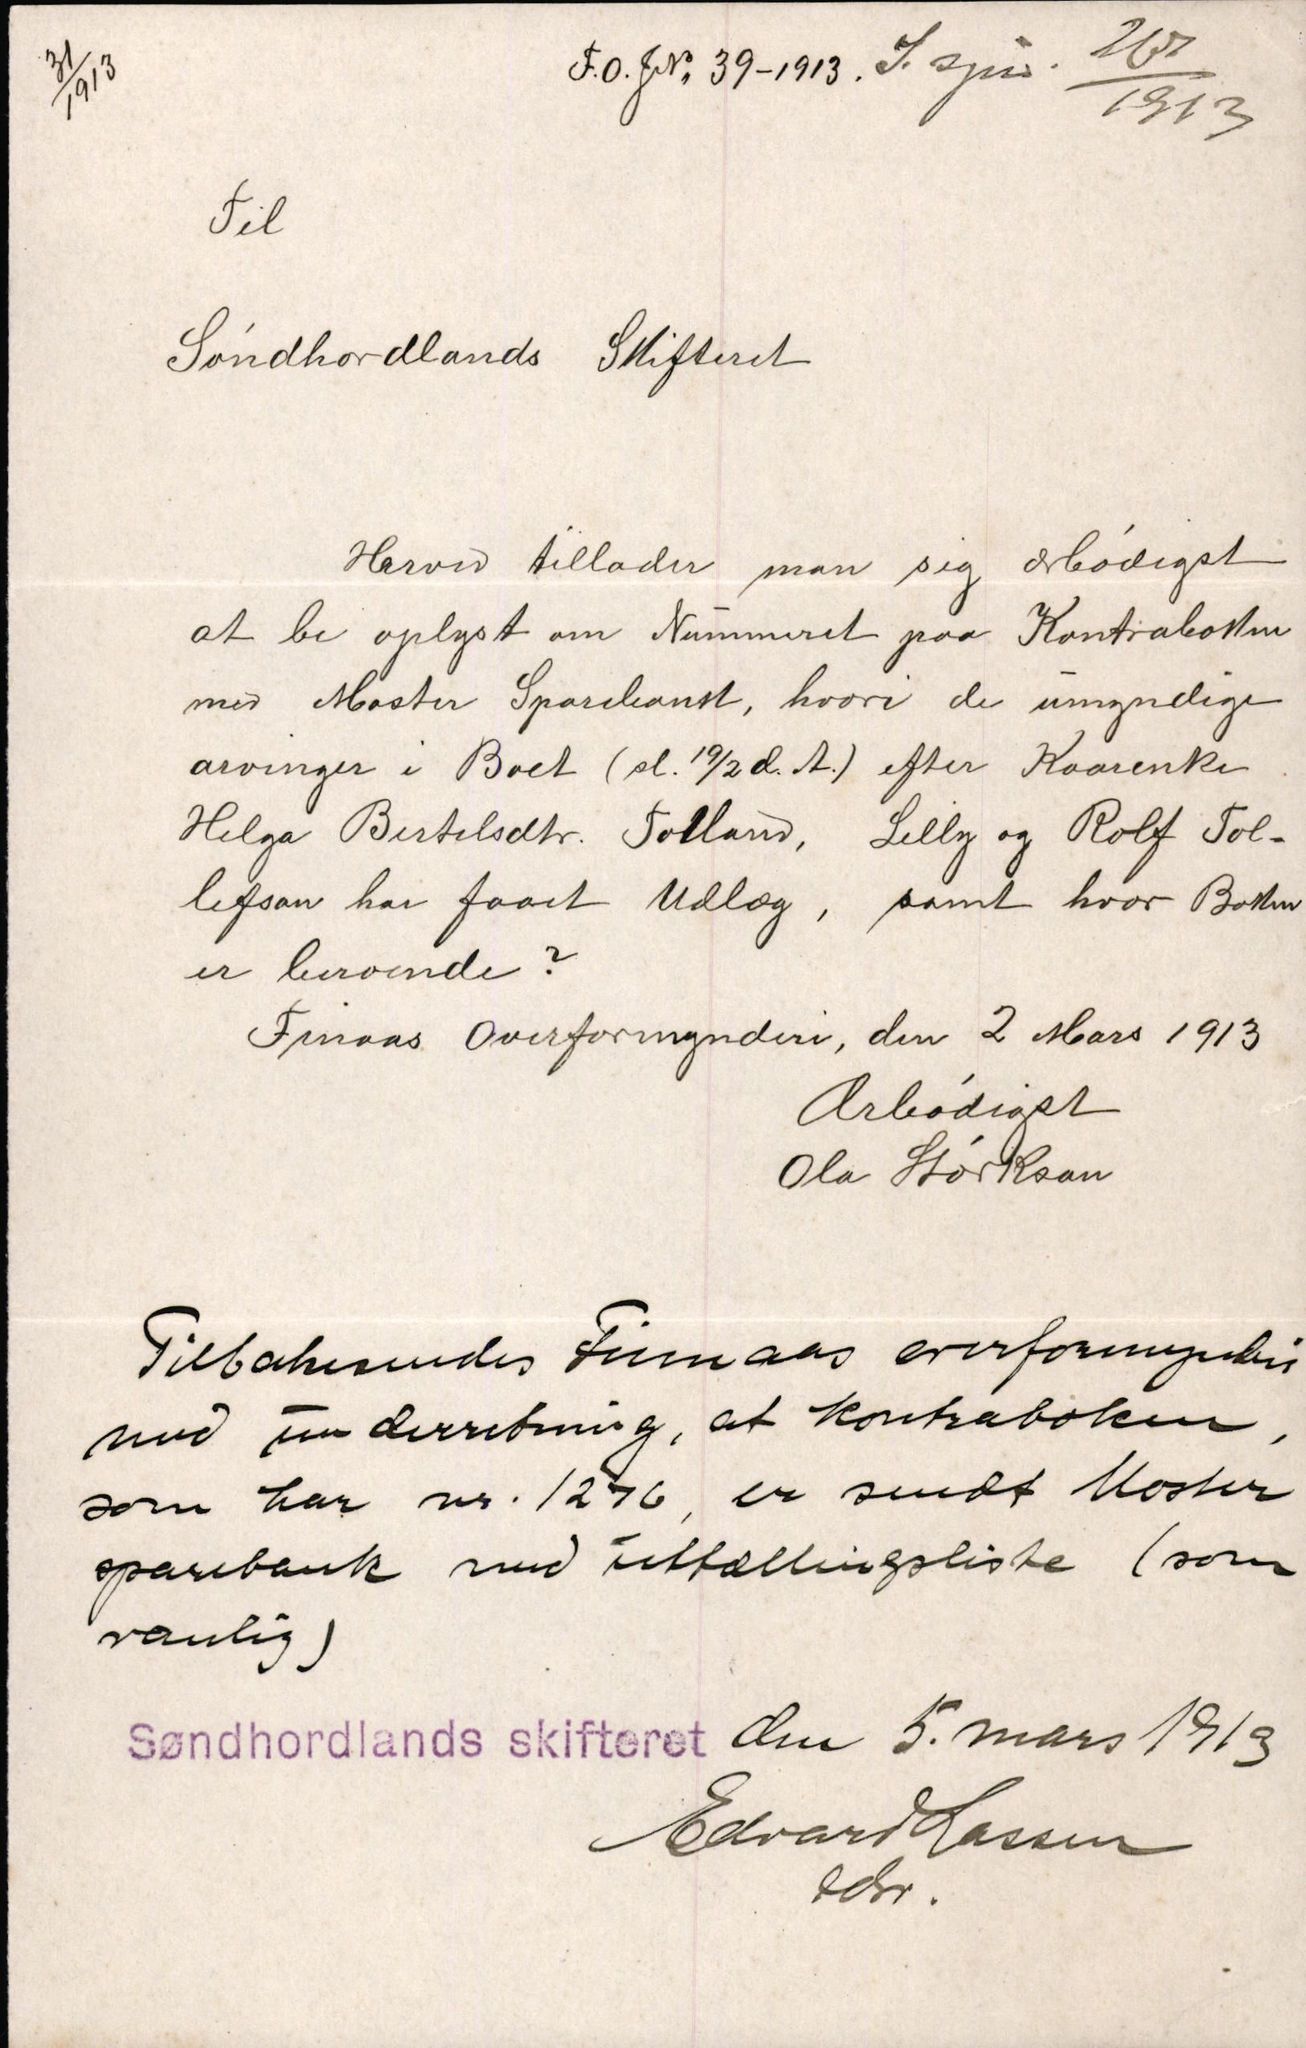 31/1913
F.O. J.No. 39-1913. J. sjur.
1913
Til
Söndhordlands Skifteret
Herved tillader man sig ærbödigst
at be oplyst om Nummeret paa Kontraboken
med Moster Sparebank, hvori de umyndige
arvinger i Boet (sl. 19/2 d. A.) efter Kaarenke
Helga Bertelsdtr. Folland, Lilly og Rolf Tol-
lefson har faaet Udlæg, samt hvor Boken
er beroende?
Finaas Overformynderi, den 2 Mars 1913
Ærbödigst
Ola Störkson
Tilbakesendes Finnaas overformynderi
med underretning, at kontraboken,
som har nr. 1276, er sendt Moster
sparebank med uttællingsliste (som
vanlig)
Søndhordlands skifteret den 5. mars 1913
Edvard Lassen